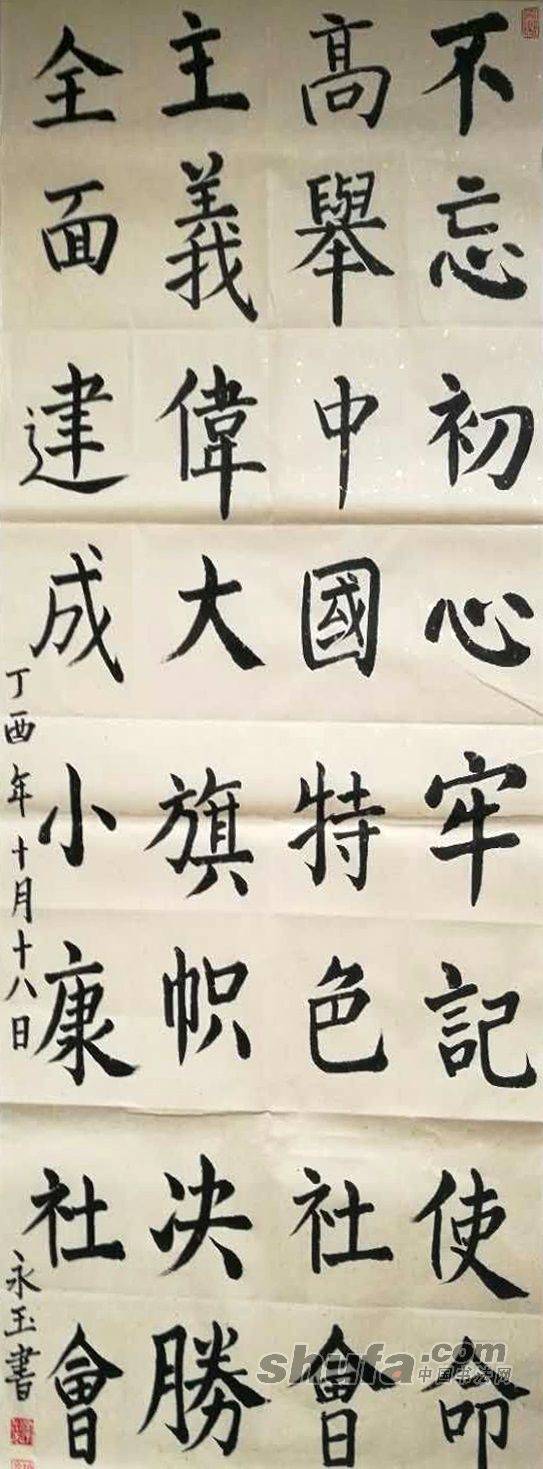 不忘初心牢記使命
高舉中國特色社會
主義偉大旗帜决勝
全面建成小康社會
丁酉年十月十八日
永玉書
shufa.com
中国书法网